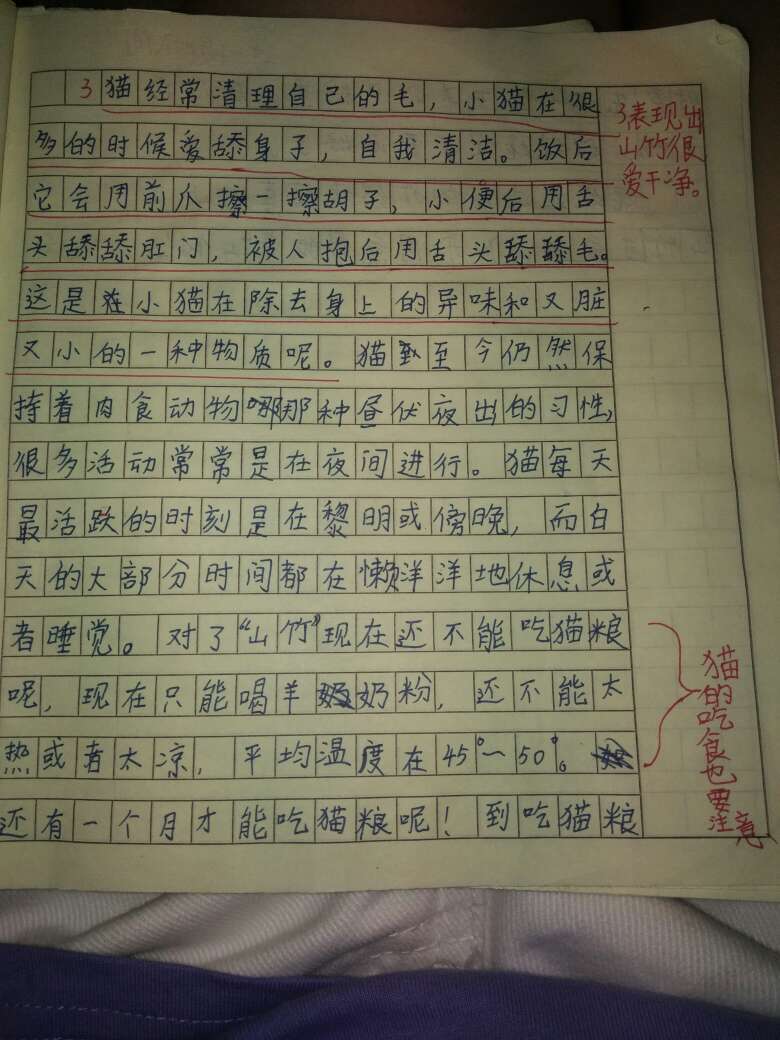 3猫经常清理自己的毛，小猫在很
多的时候爱舔身子，自我清洁。饭后
它会用前爪擦一擦胡子，小便后用舌
头舔舔肛门，被人抱后用舌头舔舔毛。
这是在小猫在除去身上的异味和又脏
又小的一种物质呢。猫至今仍然保
持着肉食动物那种昼伏夜出的习性，
很多活动常常是在夜间进行。猫每天
最活跃的时刻是在黎明或傍晚，而白
天的大部分时间都在懒洋洋地休息或
者睡觉。对了“山竹”现在还不能吃猫粮
呢，现在只能喝羊奶粉，还不能太
热或者太凉，平均温度在45°～50°。
还有一个月才能吃猫粮呢！到吃猫粮
3表现出
山竹很
爱干净。
猫的吃食也要注意